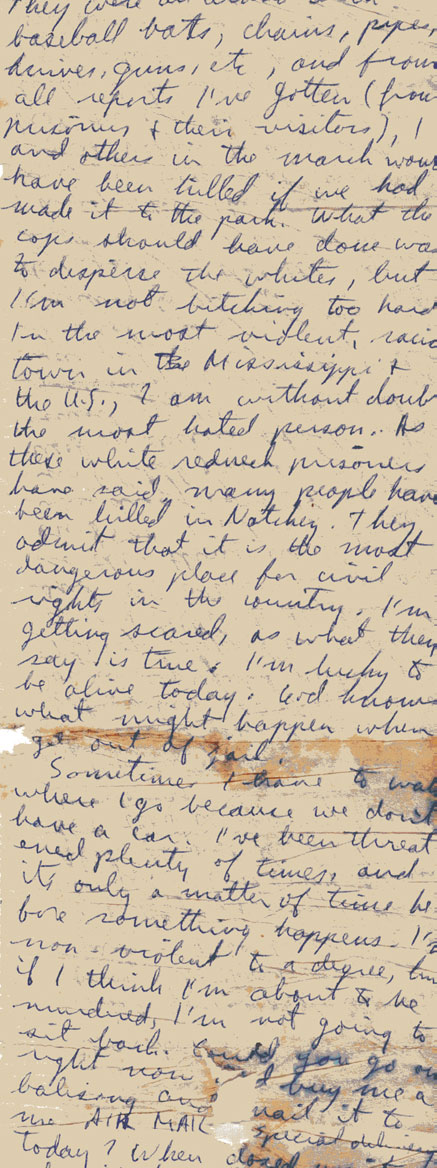 They were all armed with
baseball bats, chains, pipes,
knives, guns, etc, and from
all reports I've gotten (from
prisoners & their visitors), I
and others in the march woul
have been killed if we had
made it to the park. What the
cops should have done was
to disperse the whites, but
I'm not bitching too hard
In the most violent, racis
town in the Mississippi &
the U.S., I am without doub
the most hated person. As
these white redneck prisoners
have said, many people have
been killed in Natchez. They
admit that it is the most
dangerous place for civil
rights in the country. I'm
getting scared, as what they
say is true. I'm lucky to
be alive today. God knows
what might happen when
get out of jail.
Sometimes I have to walk
where I go because we don't
have a car. I've been threat
ened plenty of times, and
it's only a matter of time be
fore something happens. I'm
non-violent to a degree, but
if I think I'm about to be
murdered, I'm not going to
sit back. Could you go ou
right now & buy me a
balisong and mail it to
me AIR MAIL special delivery
today? When closed